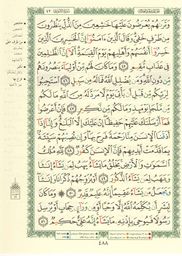 وَتَرَىٰهُمْ يُعْرَضُونَ عَلَيْهَا خَٰشِعِينَ مِنَ ٱلذُّلِّ يَنظُرُونَ
مِن طَرْفٍ خَفِيٍّ وَقَالَ ٱلَّذِينَ ءَامَنُوٓا۟ إِنَّ ٱلْخَٰسِرِينَ ٱلَّذِينَ
خَسِرُوٓا۟ أَنفُسَهُمْ وَأَهْلِيهِمْ يَوْمَ ٱلْقِيَٰمَةِ أَلَآ إِنَّ ٱلظَّٰلِمِينَ
فِى عَذَابٍ مُّقِيمٍ ٤٥ وَمَا كَانَ لَهُم مِّنْ أَوْلِيَآءَ يَنصُرُونَهُم
مِّن دُونِ ٱللَّهِ وَمَن يُضْلِلِ ٱللَّهُ فَمَا لَهُۥ مِن سَبِيلٍ ٤٦ ٱسْتَجِيبُوا۟
لِرَبِّكُم مِّن قَبْلِ أَن يَأْتِىَ يَوْمٌ لَّا مَرَدَّ لَهُۥ مِنَ ٱللَّهِ مَا لَكُم
مِّن مَّلْجَإٍ يَوْمَئِذٍ وَمَا لَكُم مِّن نَّكِيرٍ ٤٧ فَإِنْ أَعْرَضُوا۟
فَمَآ أَرْسَلْنَٰكَ عَلَيْهِمْ حَفِيظًا إِنْ عَلَيْكَ إِلَّا ٱلْبَلَٰغُ وَإِنَّآ إِذَآ
أَذَقْنَا ٱلْإِنسَٰنَ مِنَّا رَحْمَةً فَرِحَ بِهَا وَإِن تُصِبْهُمْ سَيِّئَةٌۢ
بِمَا قَدَّمَتْ أَيْدِيهِمْ فَإِنَّ ٱلْإِنسَٰنَ كَفُورٌ ٤٨ لِّلَّهِ مُلْكُ
ٱلسَّمَٰوَٰتِ وَٱلْأَرْضِ يَخْلُقُ مَا يَشَآءُ يَهَبُ لِمَن يَشَآءُ إِنَٰثًا
وَيَهَبُ لِمَن يَشَآءُ ٱلذُّكُورَ ٤٩ أَوْ يُزَوِّجُهُمْ ذُكْرَانًا وَإِنَٰثًا
وَيَجْعَلُ مَن يَشَآءُ عَقِيمًا إِنَّهُۥ عَلِيمٌ قَدِيرٌ ٥٠ وَمَا كَانَ
لِبَشَرٍ أَن يُكَلِّمَهُ ٱللَّهُ إِلَّا وَحْيًا أَوْ مِن وَرَآئِ حِجَابٍ أَوْ يُرْسِلَ
رَسُولًا فَيُوحِىَ بِإِذْنِهِۦ مَا يَشَآءُ إِنَّهُۥ عَلِىٌّ حَكِيمٌ ٥١
٤٨٨